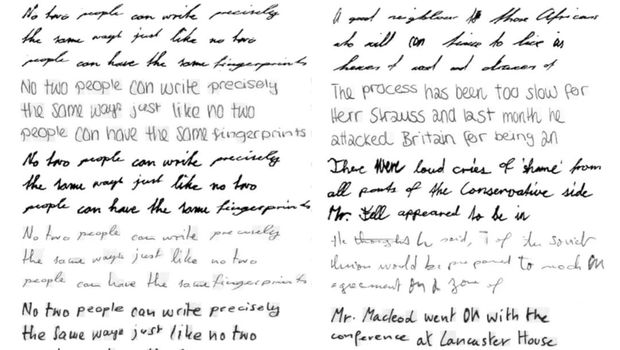 No two people can write precisely
the same ways just like no two
people can have the same fingerprints
No two people can write precisely
the same ways just like no two
people can have the same fingerprints
No two people can write precisely
the same ways just like no two
people can have the same fingerprints
No two people can write precisely
the same ways just like no two
people can have the same fingerprints
No two people can write precisely
the same ways just like no two
A good neighbour to those Africans
who will to live in
of and of
The process has been too slow for
Herr Strauss and last month he
attacked Britain for being an
There were loud cries of 'shame' from
all parts of the Conservative side
Mr. Fell appeared to be in
He he said, of the Soviet
Union would be prepared to reach an
agreement on a zone of
Mr. Macleod went on with the
conference at Lancaster House